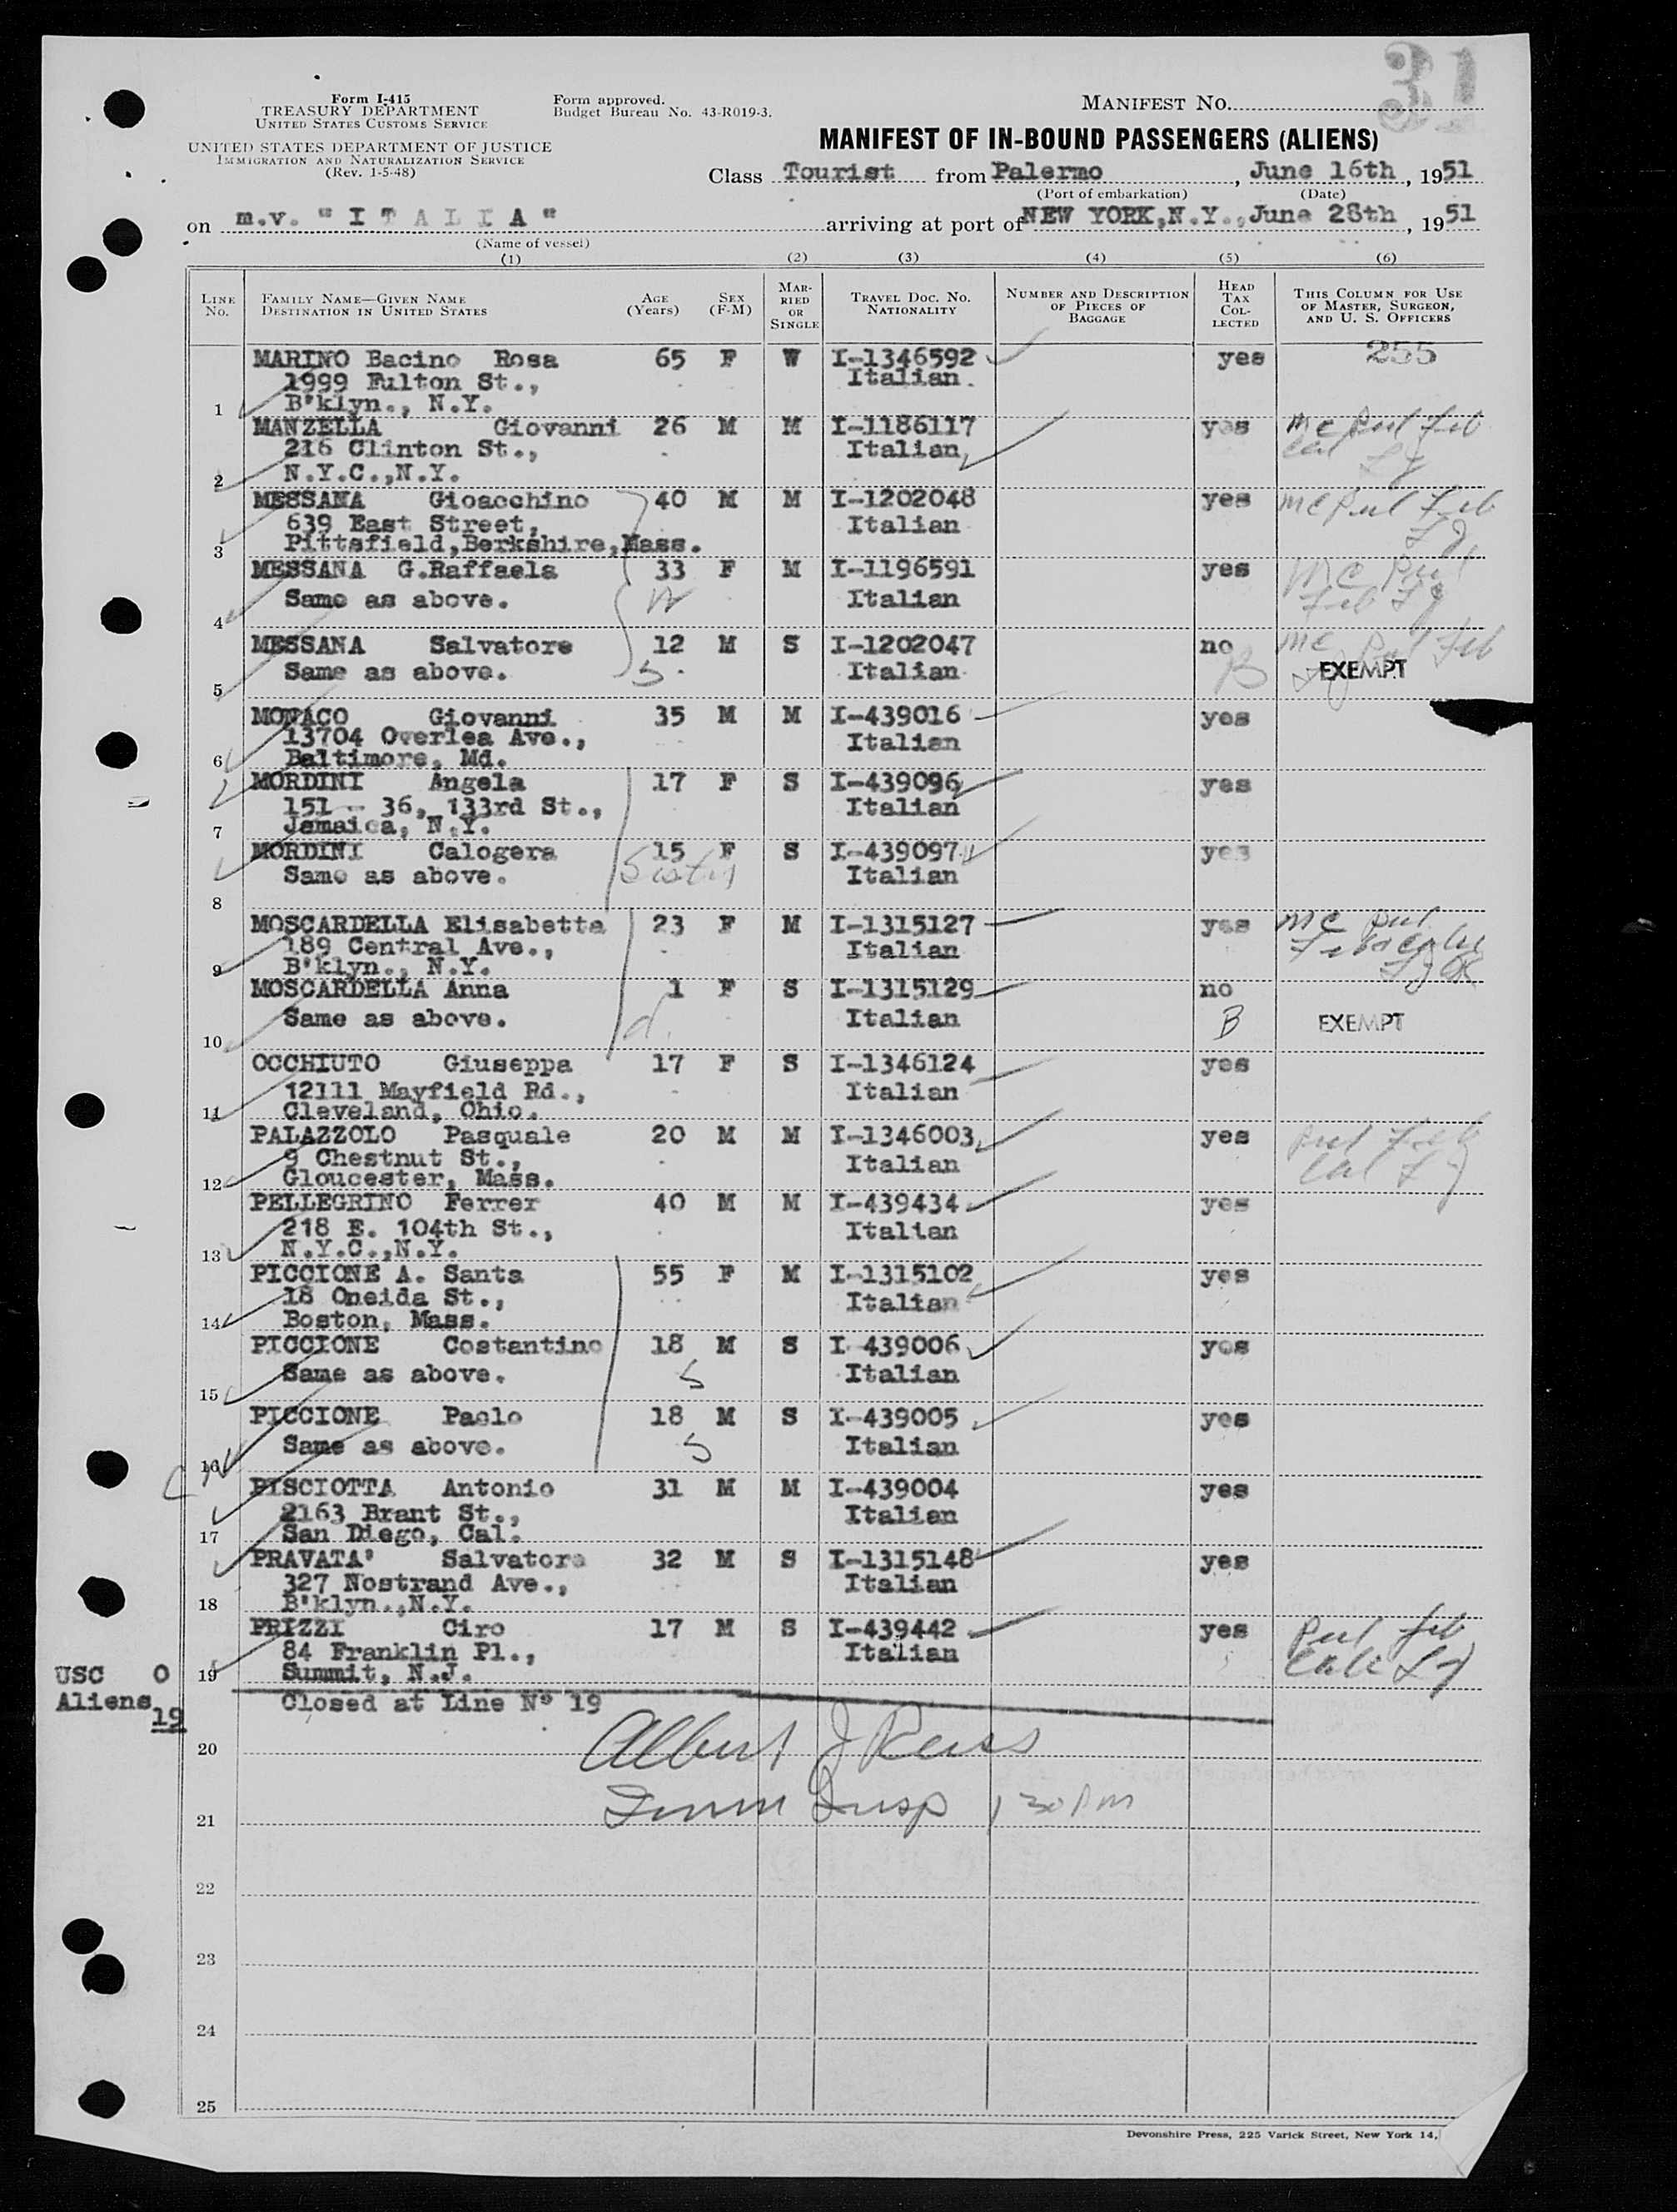 31
Form I-415
TREASURY DEPARTMENT
UNITED STATES CUSTOMS SERVICE
UNITED STATES DEPARTMENT OF JUSTICE
IMMIGRATION AND NATURALIZATION SERVICE
(Rev. 1-5-48)
Form approved.
Budget Bureau No. 43-R019-3.
MANIFEST NO.
MANIFEST OF IN-BOUND PASSENGERS (ALIENS)
Class Tourist from Palermo, June 16th, 1951
(Port of embarkation) (Date)
on m.v. "I T A L I A" arriving at port of NEW YORK,N.Y., June 28th, 1951
(Name of vessel)
(1) (2) (3) (4) (5) (6)
LINE No. FAMILY NAME—GIVEN NAME DESTINATION IN UNITED STATES AGE (Years) SEX (F-M) MARRIED OR SINGLE TRAVEL DOC. NO. NATIONALITY NUMBER AND DESCRIPTION OF PIECES OF BAGGAGE HEAD TAX COLLECTED THIS COLUMN FOR USE OF MASTER, SURGEON, AND U. S. OFFICERS
MARINO Bacino Rosa 65 F W I-1346592 yes 255
1999 Fulton St., Italian.
1 B'klyn., N.Y.
MANZELLA Giovanni 26 M M I-1186117 yes
216 Clinton St., Italian
2 N.Y.C.,N.Y.
MESSANA Gioacchino 40 M M I-1202048 yes
639 East Street, Italian
3 Pittsfield,Berkshire,Mass.
MESSANA G.Raffaela 33 F M I-1196591 yes
Same as above. W Italian
4
MESSANA Salvatore 12 M S I-1202047 no
Same as above. S. Italian B EXEMPT
5
MONACO Giovanni 35 M M I-439016 yes
13704 Overlea Ave., Italian
6 Baltimore, Md.
MORDINI Angela 17 F S I-439096 yes
151 - 36, 133rd St., Italian
7 Jamaica, N.Y.
MORDINI Calogera 15 F S I-439097 yes
Same as above. Sister Italian
8
MOSCARDELLA Elisabetta 23 F M I-1315127 yes
189 Central Ave., Italian
9 B'klyn., N.Y.
MOSCARDELLA Anna 1 F S I-1315129 no
Same as above. d. Italian B EXEMPT
10
OCCHIUTO Giuseppa 17 F S I-1346124 yes
12111 Mayfield Rd., Italian
11 Cleveland, Ohio.
PALAZZOLO Pasquale 20 M M I-1346003 yes
9 Chestnut St., Italian
12 Gloucester, Mass.
PELLEGRINO Ferrer 40 M M I-439434 yes
218 E. 104th St., Italian
13 N.Y.C.,N.Y.
PICCIONE A. Santa 55 F M I-1315102 yes
18 Oneida St., Italian
14 Boston, Mass.
PICCIONE Costantino 18 M S I-439006 yes
Same as above. S Italian
15
PICCIONE Paolo 18 M S I-439005 yes
Same as above. S Italian
16
PISCIOTTA Antonio 31 M M I-439004 yes
2163 Brant St., Italian
17 San Diego, Cal.
PRAVATA' Salvatore 32 M S I-1315148 yes
327 Nostrand Ave., Italian
18 B'klyn.,N.Y.
PRIZZI Ciro 17 M S I-439442 yes
84 Franklin Pl., Italian
19 Summit, N.J.
USC 0
Aliens 19
Closed at Line Nº 19
20 Albert J Reiss
21 Immn Insp 1 30 PM
22
23
24
25
Devonshire Press, 225 Varick Street, New York 14,